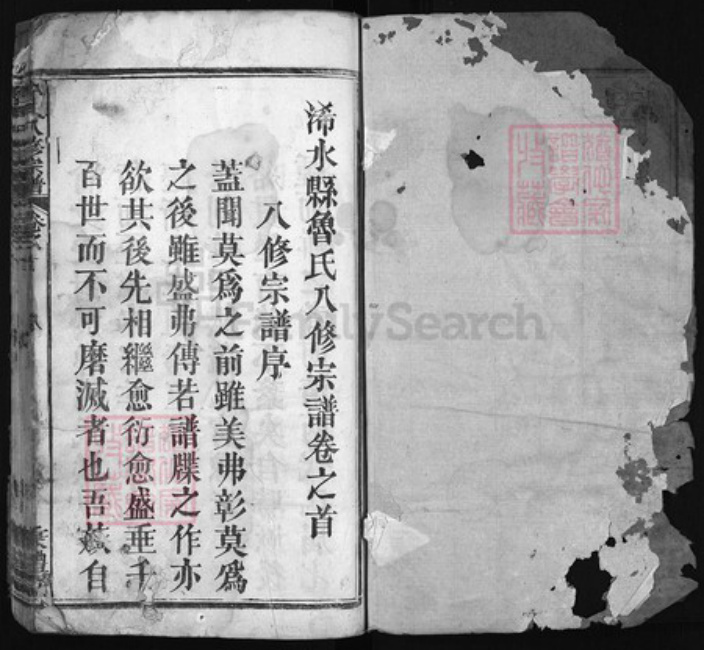 浠水縣魯氏八修宗譜卷之首
八修宗譜序
蓋聞莫爲之前雖美弗彰莫爲
之後雖盛弗傳若譜牒之作亦
欲其後先相繼愈衍愈盛垂千
百世而不可磨滅者也吾族自
FamilySearch